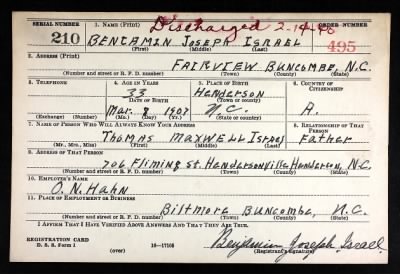 SERIAL NUMBER 1. NAME (Print) Discharged 2-14-40 ORDER NUMBER
210 BENJAMIN JOSEPH ISRAEL 495
(First) (Middle) (Last)
2. ADDRESS (Print)
FAIRVIEW BUNCOMBE, N.C.
(Number and street or R. F. D. number) (Town) (County) (State)
3. TELEPHONE 4. AGE IN YEARS 5. PLACE OF BIRTH 6. COUNTRY OF CITIZENSHIP
33 Henderson
DATE OF BIRTH (Town or county)
Mar. 9 1907 N.C. A.
(Exchange) (Number) (Mo.) (Day) (Yr.) (State or country)
7. NAME OF PERSON WHO WILL ALWAYS KNOW YOUR ADDRESS 8. RELATIONSHIP OF THAT PERSON
Thomas Maxwell Israel Father
(Mr., Mrs., Miss) (First) (Middle) (Last)
9. ADDRESS OF THAT PERSON
706 Fliming St. Hendersonville Henderson, N.C.
(Number and street or R. F. D. number) (Town) (County) (State)
10. EMPLOYER'S NAME
O. N. Hahn
11. PLACE OF EMPLOYMENT OR BUSINESS
Biltmore Buncombe, N.C.
(Number and street or R. F. D. number) (Town) (County) (State)
I AFFIRM THAT I HAVE VERIFIED ABOVE ANSWERS AND THAT THEY ARE TRUE.
REGISTRATION CARD
D. S. S. Form 1 (over) 16-17105 Benjamin Joseph Israel
(Registrant's signature)